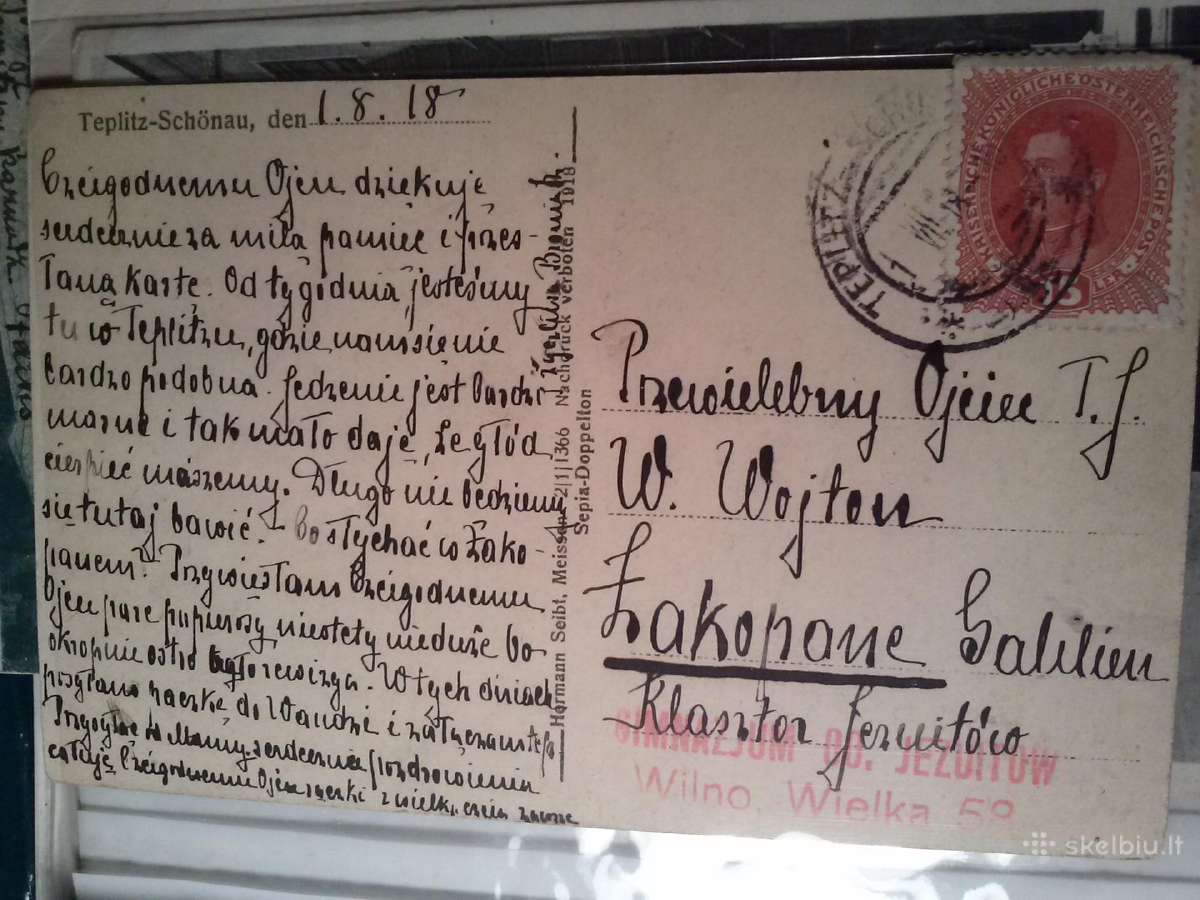 Teplitz-Schönau, den 1.8.18
Czcigodnemu Ojcu dziękuję
serdecznie za miłą pamięć i przes-
łaną kartę. Od tygodnia jesteśmy
tu w Teplitzu, gdzie nam się nie
bardzo podoba. Jedzenie jest bardzo
marne i tak mało dają, że głód
cierpieć muszemy. Długo nie będziemy
się tutaj bawić. Co słychać w Zako-
panem? Przywiozłam Czcigodnemu
Ojcu parę papierosy niestety nieduże bo
okropnie ostro rewizya. W tych dniach
posyłam paczkę do Wandzi i załączam
Mamy serdeczne pozdrowienia
całuję Czcigodnemu Ojcu rączki z wielką czcią zawsze
Hermann Seibt, Meissen 2|1|1366 Nachdruck verboten 1918
Sepia-Doppelton
KAISERLICHE KÖNIGLICHE ÖSTERREICHISCHE POST
15
TEPLITZ-SCHÖN
VIII
Przewielebny Ojciec T. J.
W. Wojton
Zakopane Galizien
Klasztor Jezuitów
GIMNAZJUM OO. JEZUITÓW
Wilno, Wielka 58
skelbiu.lt